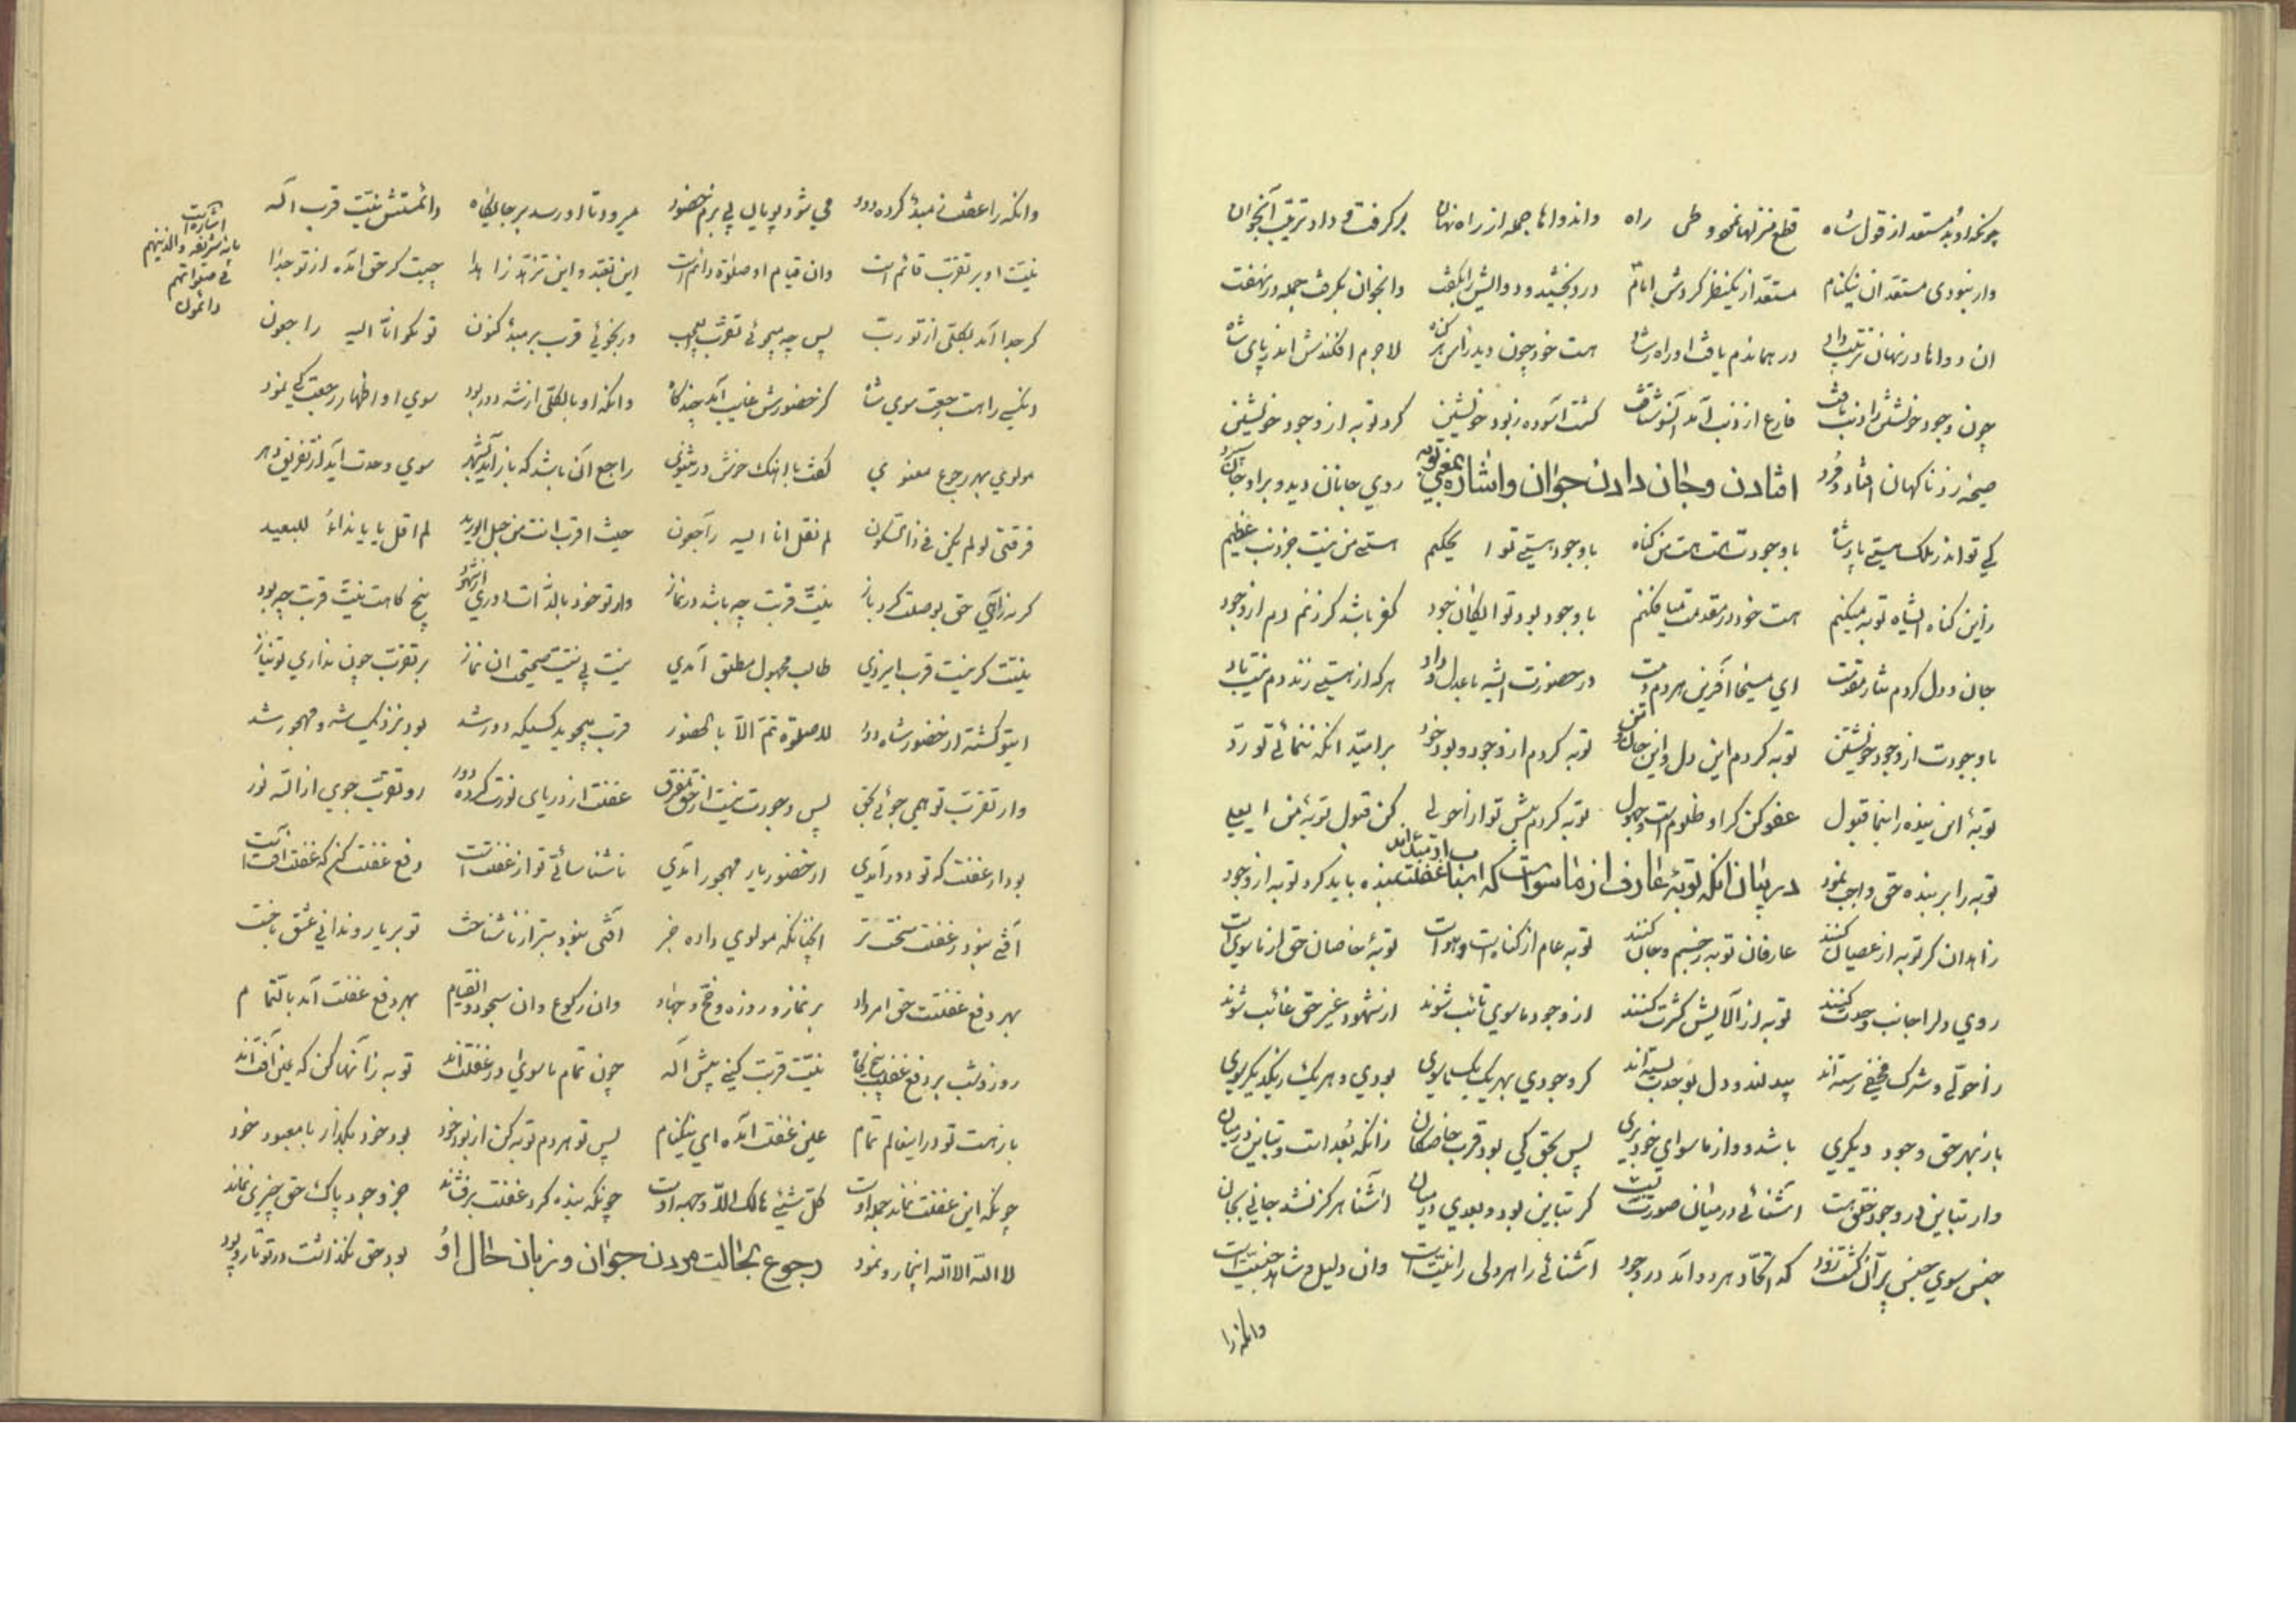 چونکه او بد مستعد از قول شاه قطع منزلها نمود و طی راه واندواها جمله از راه نهان بر گرفت و داد ترتیب آنجوان
ور نبودی مستعد ان نیکنام مستعد از یکنظر کردش امام درد بخشید و دوایش را بگفت وانجوان بگرفت جمله در نهفت
ان دواها در نهان ترتیب داد در هماندم یافت او راه رشاد هست خود چون دید راس هر گناه لاجرم افکندش اندر پای شاه
چون وجود خویشتن را ذنب یافت فارغ از ذنب آمد آنسو شتافت گشت آسوده ز بود خویشتن کرد توبه از وجود خویشتن
صیحهٔ زد ناگهان افتاد و مرد افتادن و جان دادن جوان و اشاره بمعنی توبه روی جانان دید و براو جان سپرد
کی تو اندر ملک هستی پادشاه با وجودت هست هست من گناه با وجود هستی تو ا یحکیم هستی من نیست جز ذنب عظیم
زاین گناه ایشاه توبه میکنم هست خود در مقدمت میافکنم با وجود بود تو ایکان خود کفر باشد گر زنم دم از وجود
جان و دل کردم نثار مقدمت ای مسیحا آفرین هر دم دمت در حضورت ایشه با عدل و داد هر که از هستی زند دم نیست باد
با وجودت از وجود خویشتن توبه کردم این دل و این جان و تن توبه کردم از وجود و بود خود بر امید انکه ننمائی تو رد
توبهٔ این بنده را بنما قبول عفو کن گر او ظلوم است و جهول توبه کردم پیش تو از احولی کن قبول توبهٔ من ا یعلی
توبه را بر بنده حق واجب نمود در بیان انکه توبهٔ عارف از ماسواست که ابتنا غفلتست بنده باید کرد توبه از وجود
زاهدان گر توبه از عصیان کنند عارفان توبه ز جسم و جان کنند توبه عام از گناهست و هواست توبهٔ خاصان حق از ماسواست
روی دل را جانب وحدت کنند توبه از آلایش کثرت کنند از وجود ماسوی تائب شوند از شهود غیر حق غائب شوند
زاحولی و شرک مخفی رسته‌اند پیدلند و دل بوحدت بسته‌اند گر وجودی بهر یک یک ماسوی بودی و هر یک از یکدیگر سوی
باز بهر حق وجود دیگری باشد و از ماسوای خود بری پس بحق کی بود قرب خاصگان زانکه بُعد است و تباین در میان
ور تباین در وجود خلق هست آشنائی در میان صورت نبست گر تباین بود و بعدی در میان آشنا هرگز نشد جانی بجان
جنس سوی جنس پر آن گشت زود که اتحاد هر دو آمد در وجود آشنائی را هر دلی را نیت است وان دلیل و شاهد جنسیت است
وانکه را
وانکه را غفلت ز مبدء کرده دور می شود پویا پی بزم حضور میرود تا او رسد بر جایگاه دائمستش نیت قرب اله
نیت او بر تقرب قائم است وان قیام او صلوة دائم است این تقید و این تزهد زا هدا چیست گر حق آمده از تو جدا
اشارت است بایه شریفه والذینهم فی صلواتهم دائمون
گر جدا آمد بکلی از تو رب پس چه میجوئی تقرب بیسبب ور بجوئی قرب بر مبدء کنون تو مگو انا الیه راجعون
ان کسی را هست رجعت سوی شاه کز حضورش غایب آید چندگاه وانکه او بالکلی از شه دور بود سوی او اظهار رجعت کی نمود
مولوی بهر رجوع معنوی گفت با اهنگ خوش در مثنوی راجع آن باشد که باز آید بشهر سوی وحدت آید از تفریق دهر
فرقتی لو لم یکن فی ذا السکون لم نقل انا الیه راجعون حیث اقرب انت من حبل الورید لم اقل یا یا نداءً للبعید
گر نزائی حق بوصلت کرد باز نیت قربت چه باشد در نماز ور تو خود بالذات دوری از شهود پنج گاهت نیت قربت چه بود
نیتت گر نیست قرب ایزدی طالب مجهول مطلق آمدی نیست بی نیت صحیحت ان نماز بر تقرب چون نداری تو نیاز
ایتو گشته از حضور شاه دور لا صلوة تم الا بالحضور قرب میجوید کسیکه دور شد بود نزدیک شه و مهجور شد
ور تقرب تو همی جوئی بحق پس وجودت نیست از حق مفترق غفلت از دریای نورت کرده دور رو تقرب جوی از الله نور
بود از غفلت که تو دور آمدی از حضور یار مهجور آمدی ناشناسائی تو از غفلت است رفع غفلت کن که غفلت آفت است
آفتی نبود ز غفلت سخت تر آنچنانکه مولوی داده خبر آفتی نبود بتر از ناشناخت تو بر یار و ندانی عشق باخت
بهر دفع غفلتت حق امر داد بر نماز و روزه و حج و جهاد وان رکوع و ان سجود و القیام بهر دفع غفلت آمد بالتما م
روز و شب بر دفع غفلت پنج گاه نیت قربت کنی پیش اله چون تمام ماسوای در غفلت‌اند توبه زآنها کن که عین آفت‌اند
باز هست تو در اینعالم تمام عین غفلت آمده ای نیکنام پس تو هر دم توبه کن از بود خود بود خود بگذار با معبود خود
چونکه این غفلت نماند جمله اوست کل شیئی هالک الا وجهه اوست چونکه بنده گرد غفلت بر فشاند جز وجود پاک حق چیزی نماند
لا اله الا الله اینجا رو نمود رجوع بحالت مردن جوان و زبان حال اوُ بود حق نگذاشت در تو تار و پود